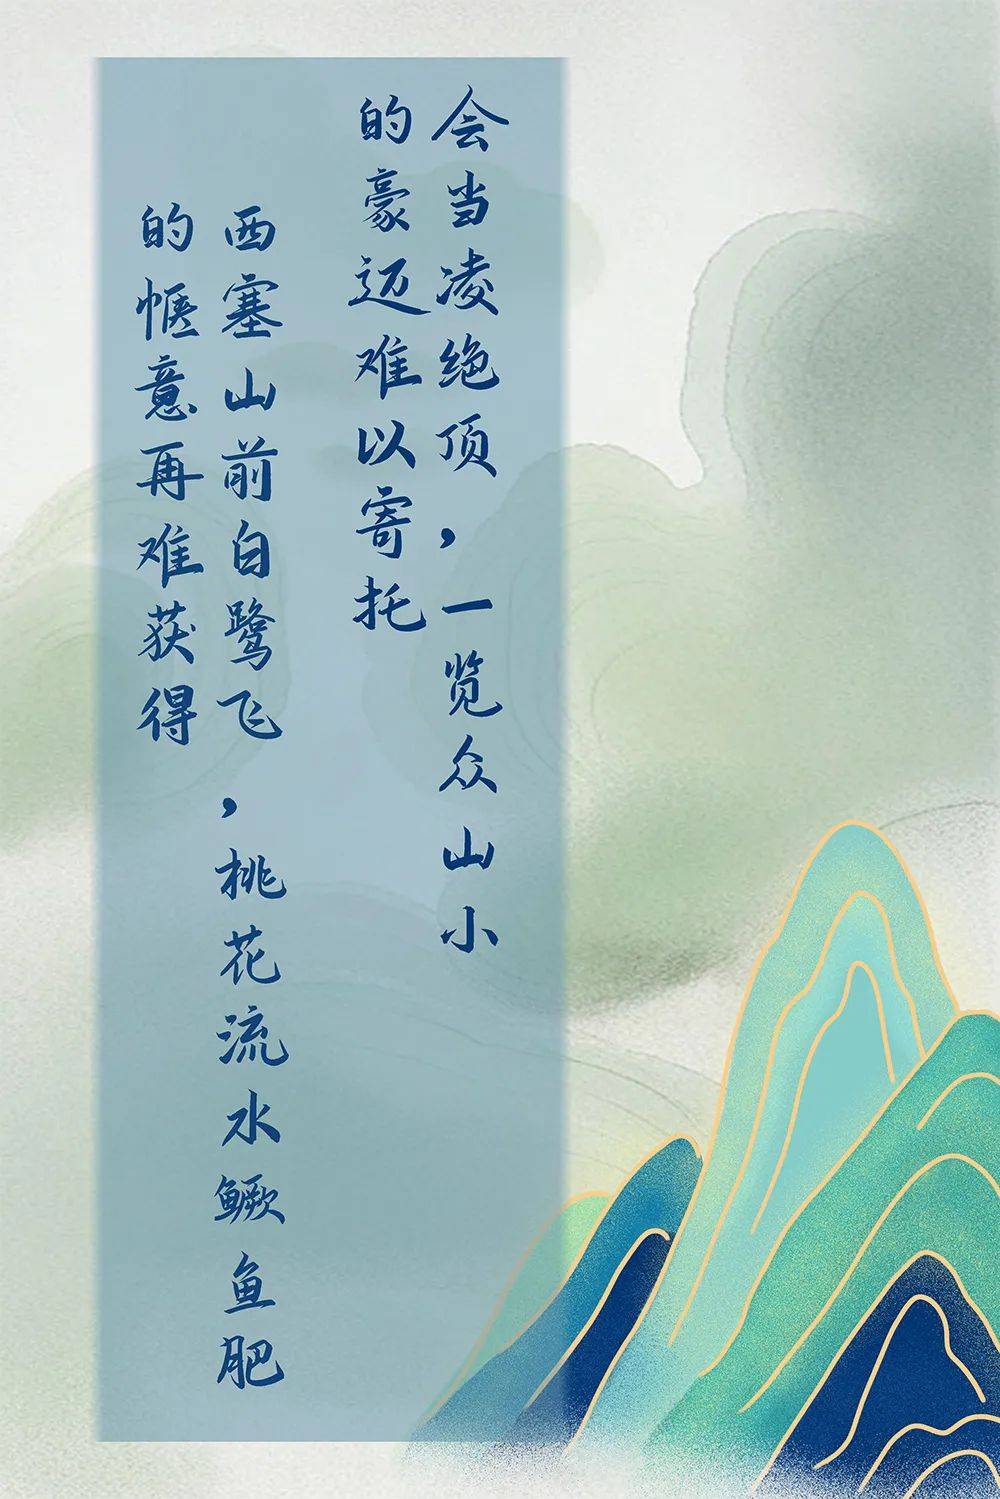 会当凌绝顶，一览众山小
的豪迈难以寄托
西塞山前白鹭飞，桃花流水鳜鱼肥
的惬意再难获得